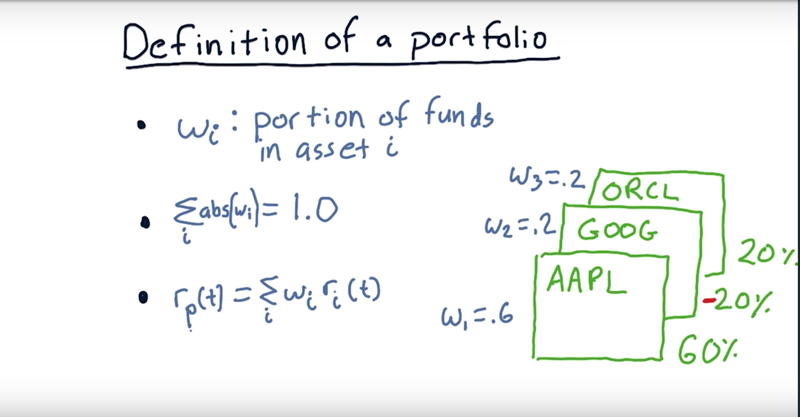 Definition of a portfolio
• wi : portion of funds
in asset i
• ∑i abs(wi) = 1.0
• rp(t) = ∑i wi ri(t)
w3=.2 ORCL
w2=.2 GOOG
20%
AAPL
-20%
w1=.6
60%